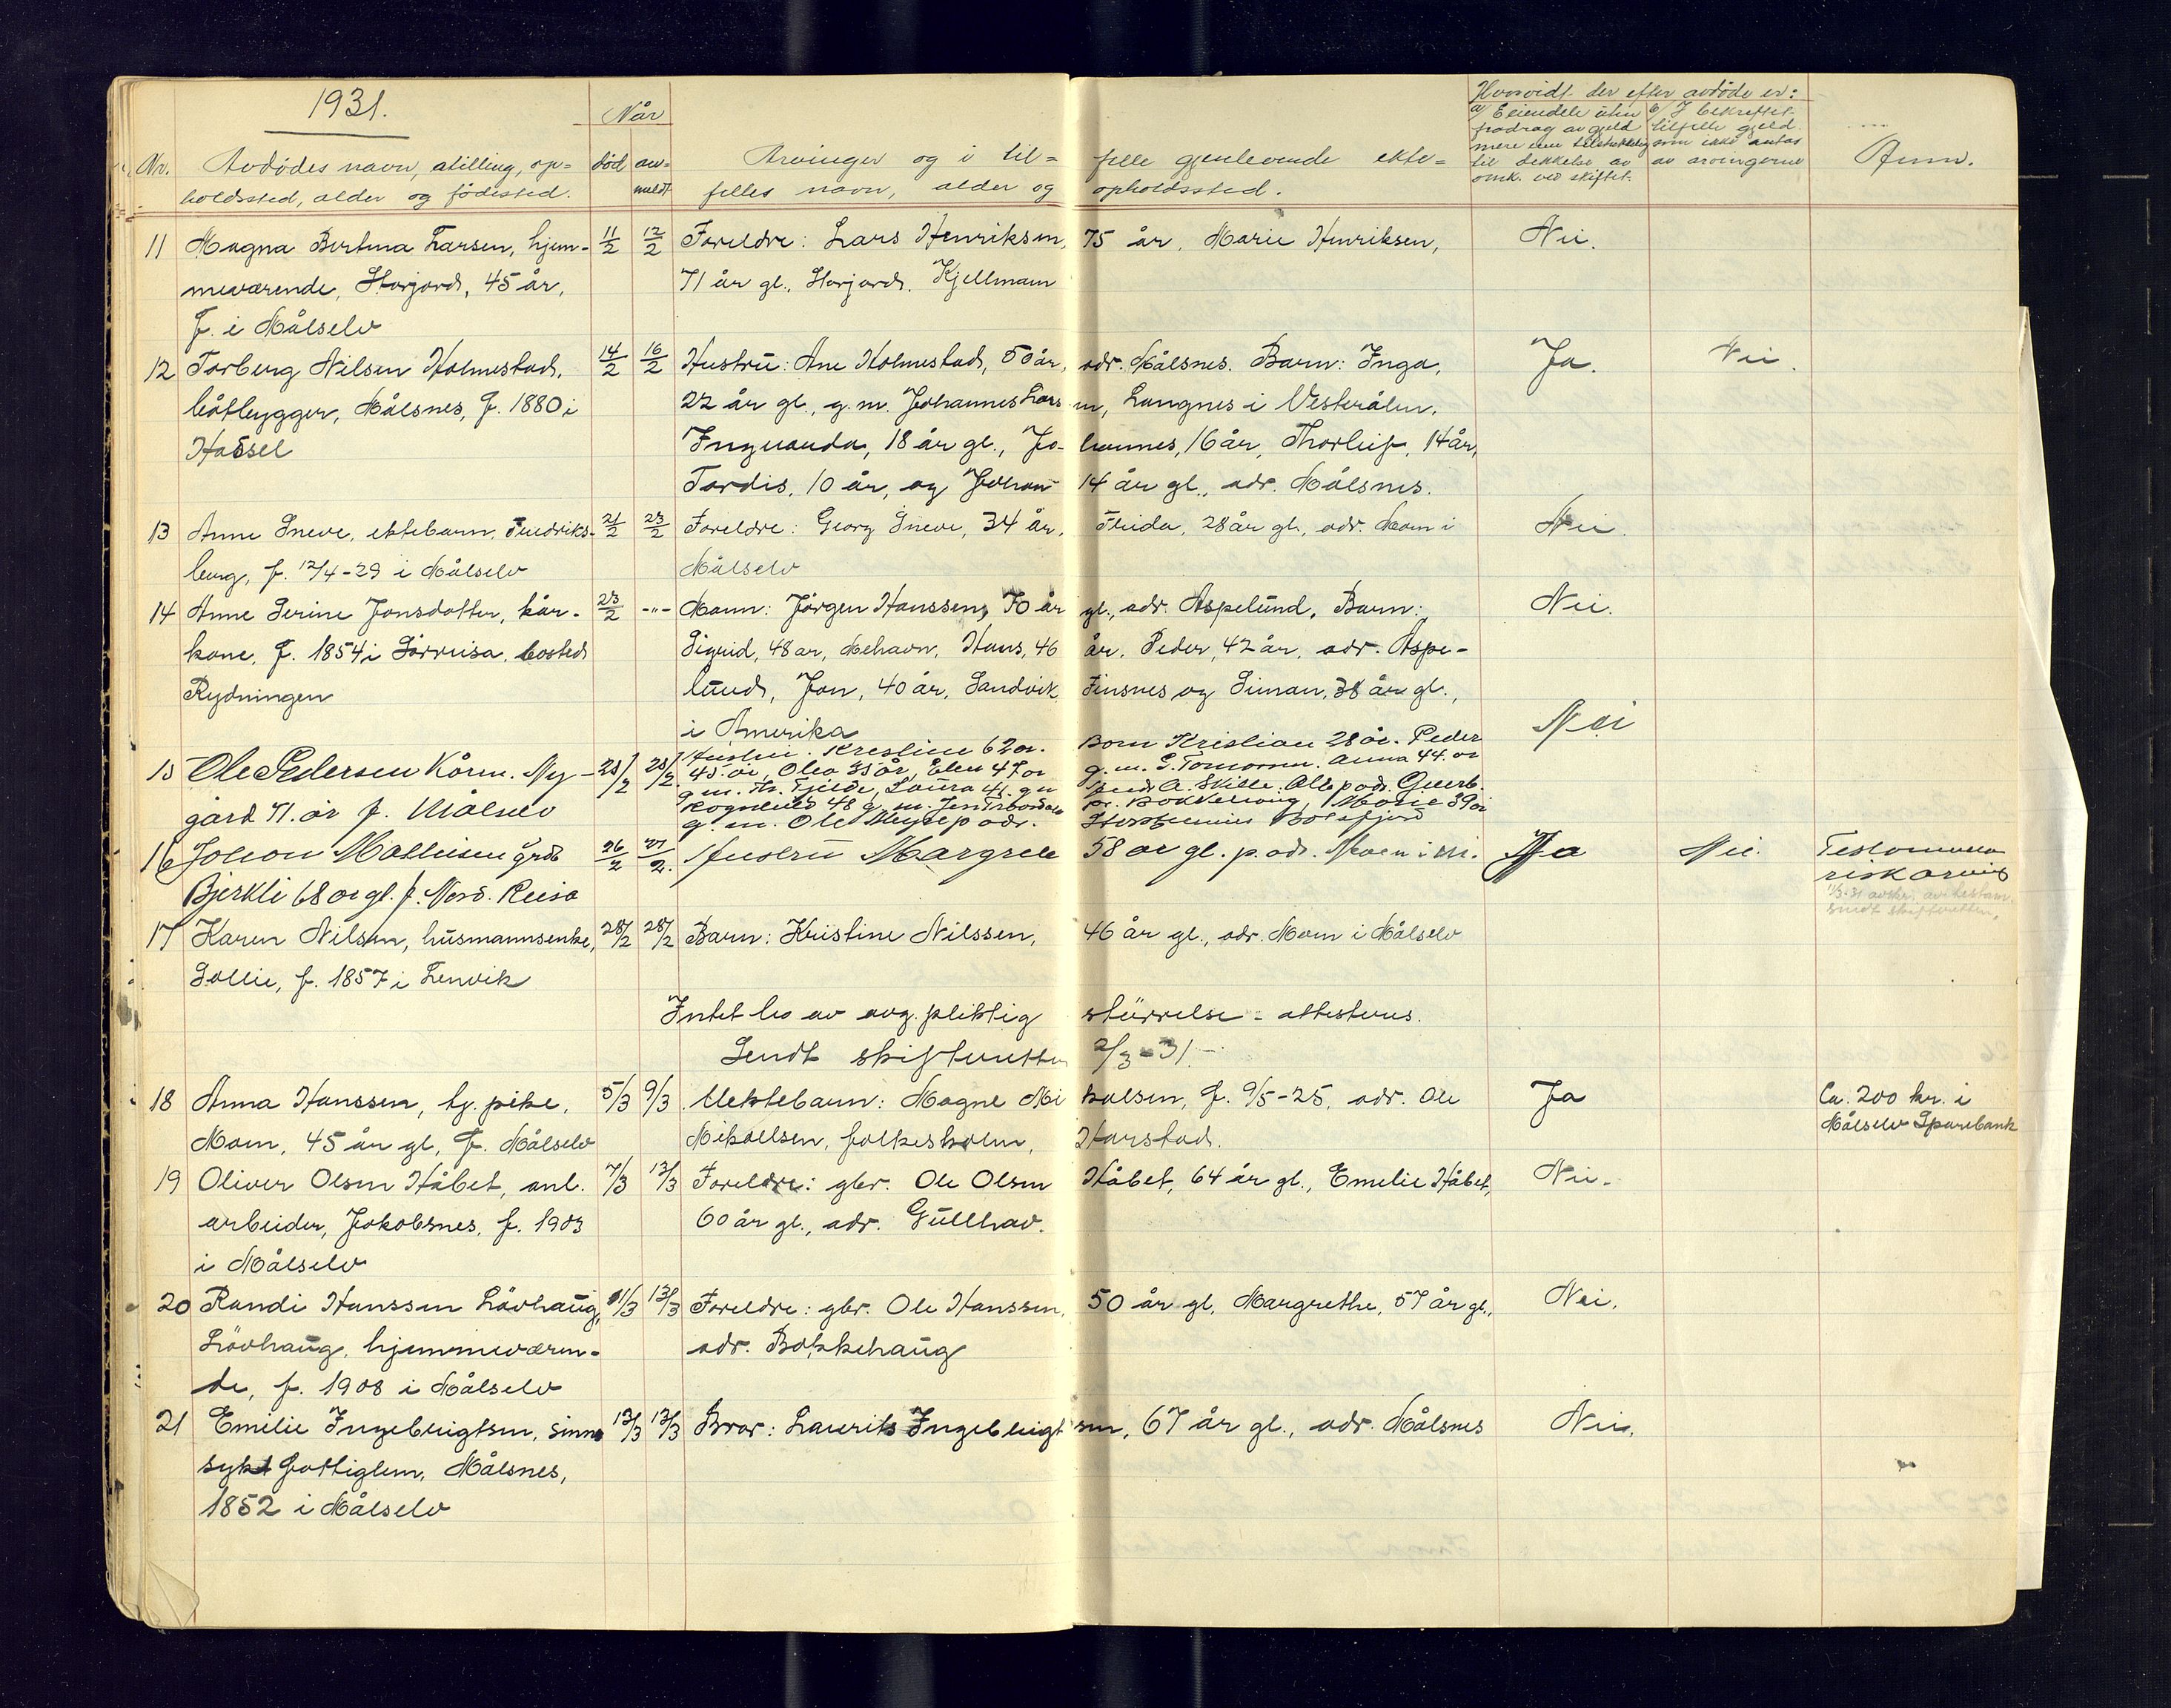 1931.
Når
Hvorvidt der efter avdöde er:
a) Eiendele uten b) I bekreftet
fradrag av gjeld tilfelle gjeld
mere enn tilstrekkelig som ikke antas
til dekkelse av av arvingerne
omk. ved skiftet.
Nr. Avdödes navn, stilling, op- död an- Arvinger og i til- felle gjenlevende ekte- Anm.
holdssted, alder og födested. meldt felles navn, alder og opholdssted.
11 Magna Bertina Larsen, hjem- 11/2 12/2 Foreldre: Lars Henriksen, 75 år, Marie Henriksen, Nei.
meværende, Storjord, 45 år, 71 år gl., Storjord, Kjellmann
f. i Målselv
12 Torberg Nilsen Holmestad, 14/2 16/2 Hustru: Ane Holmestad, 50 år, adr. Målsnes. Barn: Inga, Ja. Nei.
båtbygger, Målsnes, f. 1880 i 22 år gl., g.m. Johannes Larsen, Langnes i Vesterålen,
Hassel Ingvarda, 18 år gl., Johannes, 16 år, Thorleif, 14 år,
Tordis, 10 år, og Johan 14 år gl., adr. Målsnes.
13 Anne Sneve, ektebarn, Fredriks- 21/2 23/2 Foreldre: Georg Sneve, 34 år, Frida, 28 år gl., adr. Moen i Nei.
berg, f. 12/4-29 i Målselv Målselv
14 Anne Serine Jonsdatter, kår- 23/2 -"- Mann: Jörgen Hanssen, 70 år gl., adr. Aspelund, Barn: Nei.
kone, f. 1854 i Sörreisa, bosted Sigrid, 48 år, Mehavn, Hans, 46 år, Peder, 42 år, adr. Aspe-
Rydningen lund, Jon, 40 år, Sandvik Finsnes og Siman, 38 år gl.,
i Amerika
15 Ole Pedersen Kårm. Ny- 23/2 23/2 Hustru. Kristine 62 år. Barn Kristian 28 år. Peder Nei
gård 71. år f. Målselv 45. år, Olea 35 år, Elen 47 år g. m. Anna 44. år
g. m. Laura 41. g m
Ragnhild 48 g. m. Bakkehaug, Marie 39 år
g. m. Ole adr.
16 Johan Mathisen grdb 26/2 27/2. Hustru Margrete 58 år gl. p. adr. Moen i M. Ja Nei. Testamenta
Bjerkli 68 år gl. f. Nord. Reisa risk arving
11/3-31 avskr. av testam.
sendt skifteretten.
17 Karen Nilsen, husmannsenke, 28/2 28/2 Barn: Kristine Nilssen, 46 år gl., adr. Moen i Målselv
Sollie, f. 1857 i Lenvik
Intet bo av avg. pliktig störrelse - attesteres.
Sendt skifteretten 2/3-31.-
18 Anna Hanssen, tj. pike, 5/3 9/3 Uektebarn: Magne Mikalsen, f. 9/5-25, adr. Ole Ja Ca. 200 kr. i
Moen, 45 år gl, f. Målselv Mikalsen, folkeskolen, Harstad. Målselv Sparebank
19 Oliver Olsen Håbet, anl. 7/3 13/3 Foreldre: gbr. Ole Olsen Håbet, 64 år gl., Emelie Håbet, Nei.
arbeider, Jakobsnes, f. 1903 60 år gl., adr. Gullhav.
i Målselv
20 Randi Hanssen Lövhaug, 11/3 13/3 Foreldre: gbr. Ole Hanssen, 50 år gl, Margrethe, 57 år gl., Nei.
Lövhaug, hjemmeværen- adr. Bakkehaug
de, f. 1908 i Målselv
21 Emilie Ingebrigtsen, sinns 13/3 13/3 Bror: Laurits Ingebrigtsen, 67 år gl., adr. Målsnes Nei.
sykt fattiglem, Målsnes,
1852 i Målselv